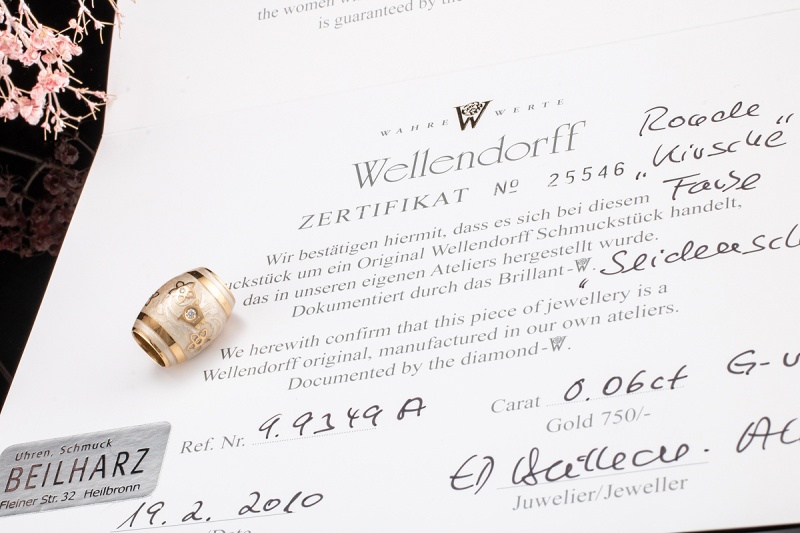 the women
is guaranteed by the
WAHRE W WERTE
Wellendorff
ZERTIFIKAT № 25546
Wir bestätigen hiermit, dass es sich bei diesem
uckstück um ein Original Wellendorff Schmuckstück handelt,
das in unseren eigenen Ateliers hergestellt wurde.
Dokumentiert durch das Brillant-W.
We herewith confirm that this piece of jewellery is a
Wellendorff original, manufactured in our own ateliers.
Documented by the diamond-W.
"Kirsche"
Farbe
Ref. Nr. 9.9349 A
Carat 0.06ct G-
Gold 750/-
19.2.2010
Juwelier/Jeweller
Uhren, Schmuck
BEILHARZ
Fleiner Str. 32 Heilbronn